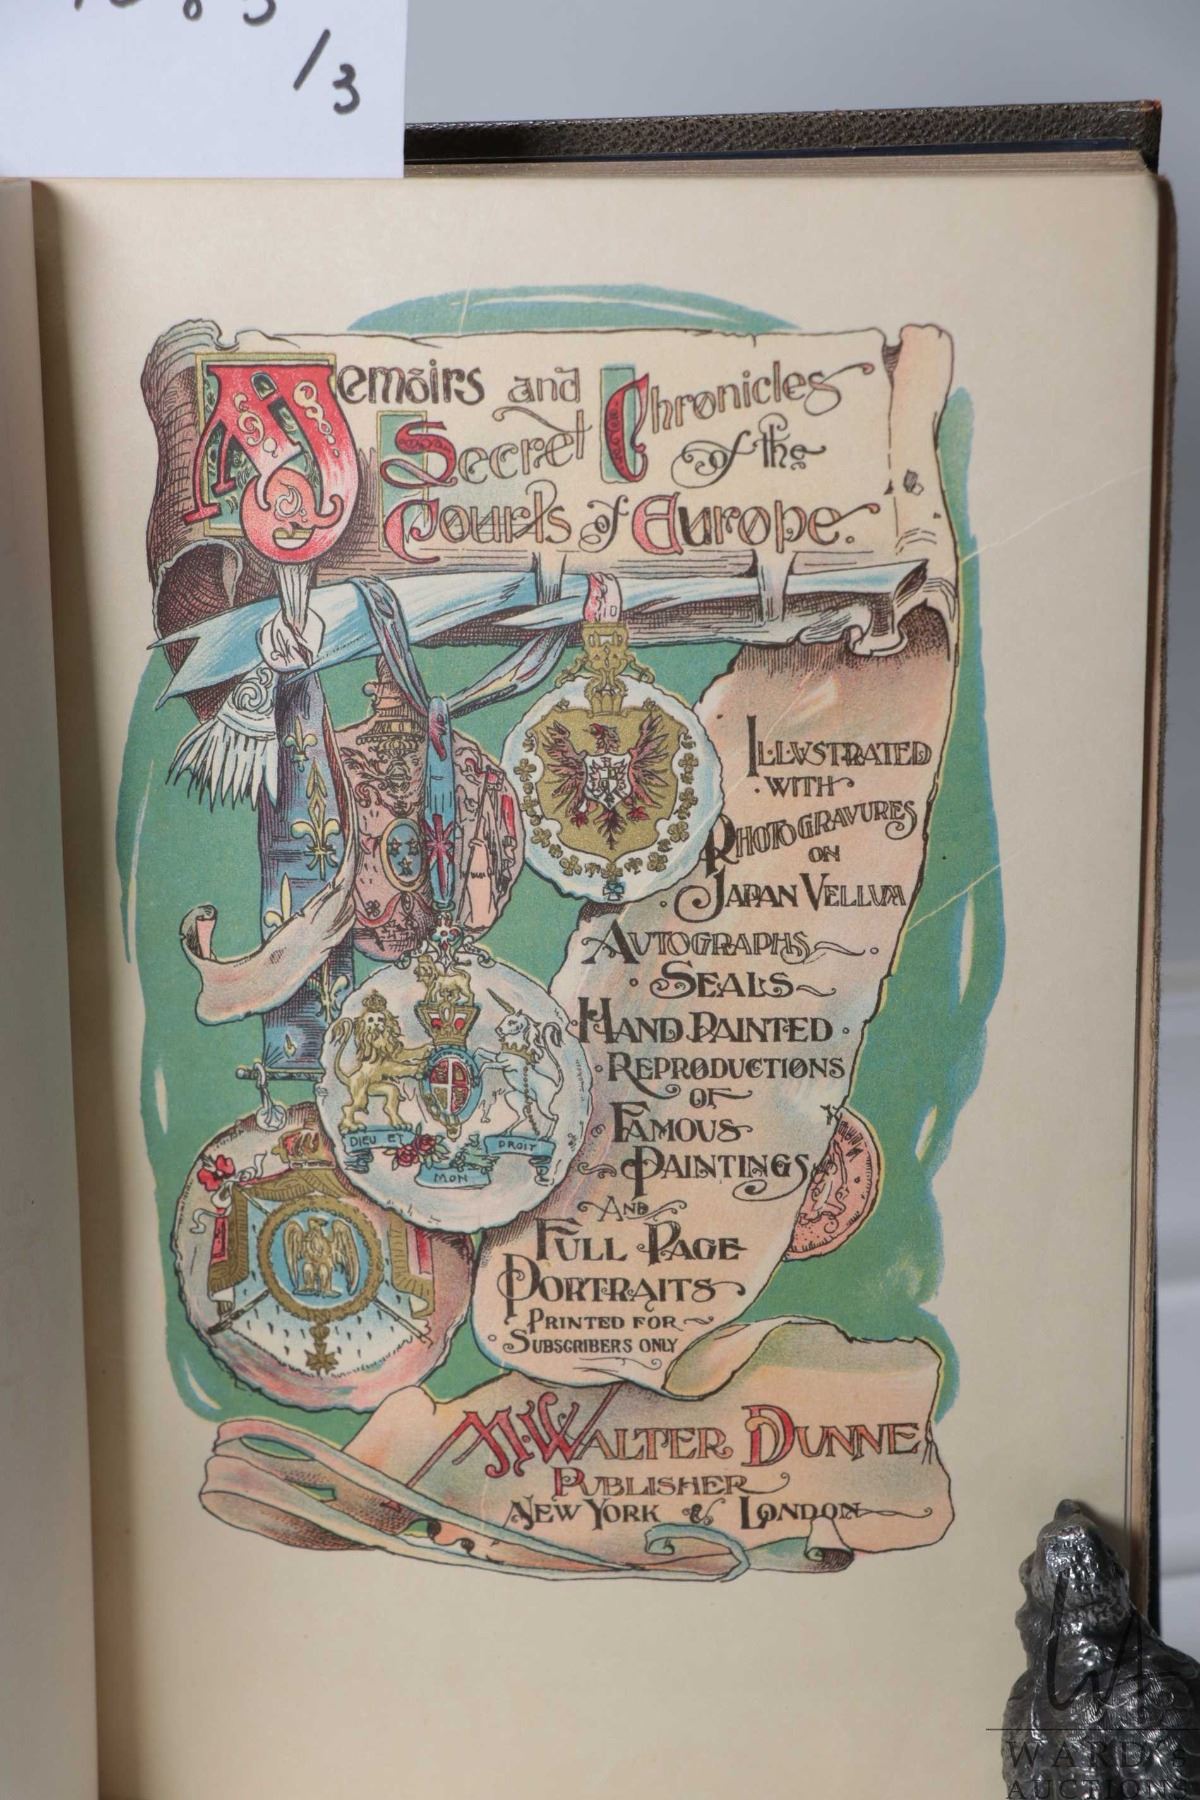 /3
Memoirs and
Secret Chronicles
of the
Courts of Europe.
Illustrated
with
Photogravures
on
Japan Vellum
Autographs
Seals
Hand Painted
Reproductions
of
Famous
Paintings
And
Full Page
Portraits
Printed for
Subscribers only
DIEU ET
MON
DROIT
M. Walter Dunne
Publisher
New York & London
WARD'S
AUCTIONS